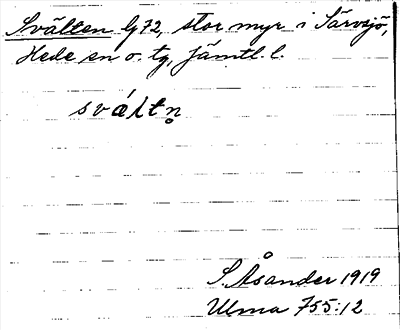 Svälten G72, stor myr i Särvsjö,
Hede sn o. tg, Jämtl. l.
sváltn̥
S. Åsander 1919
Ulma 755:12